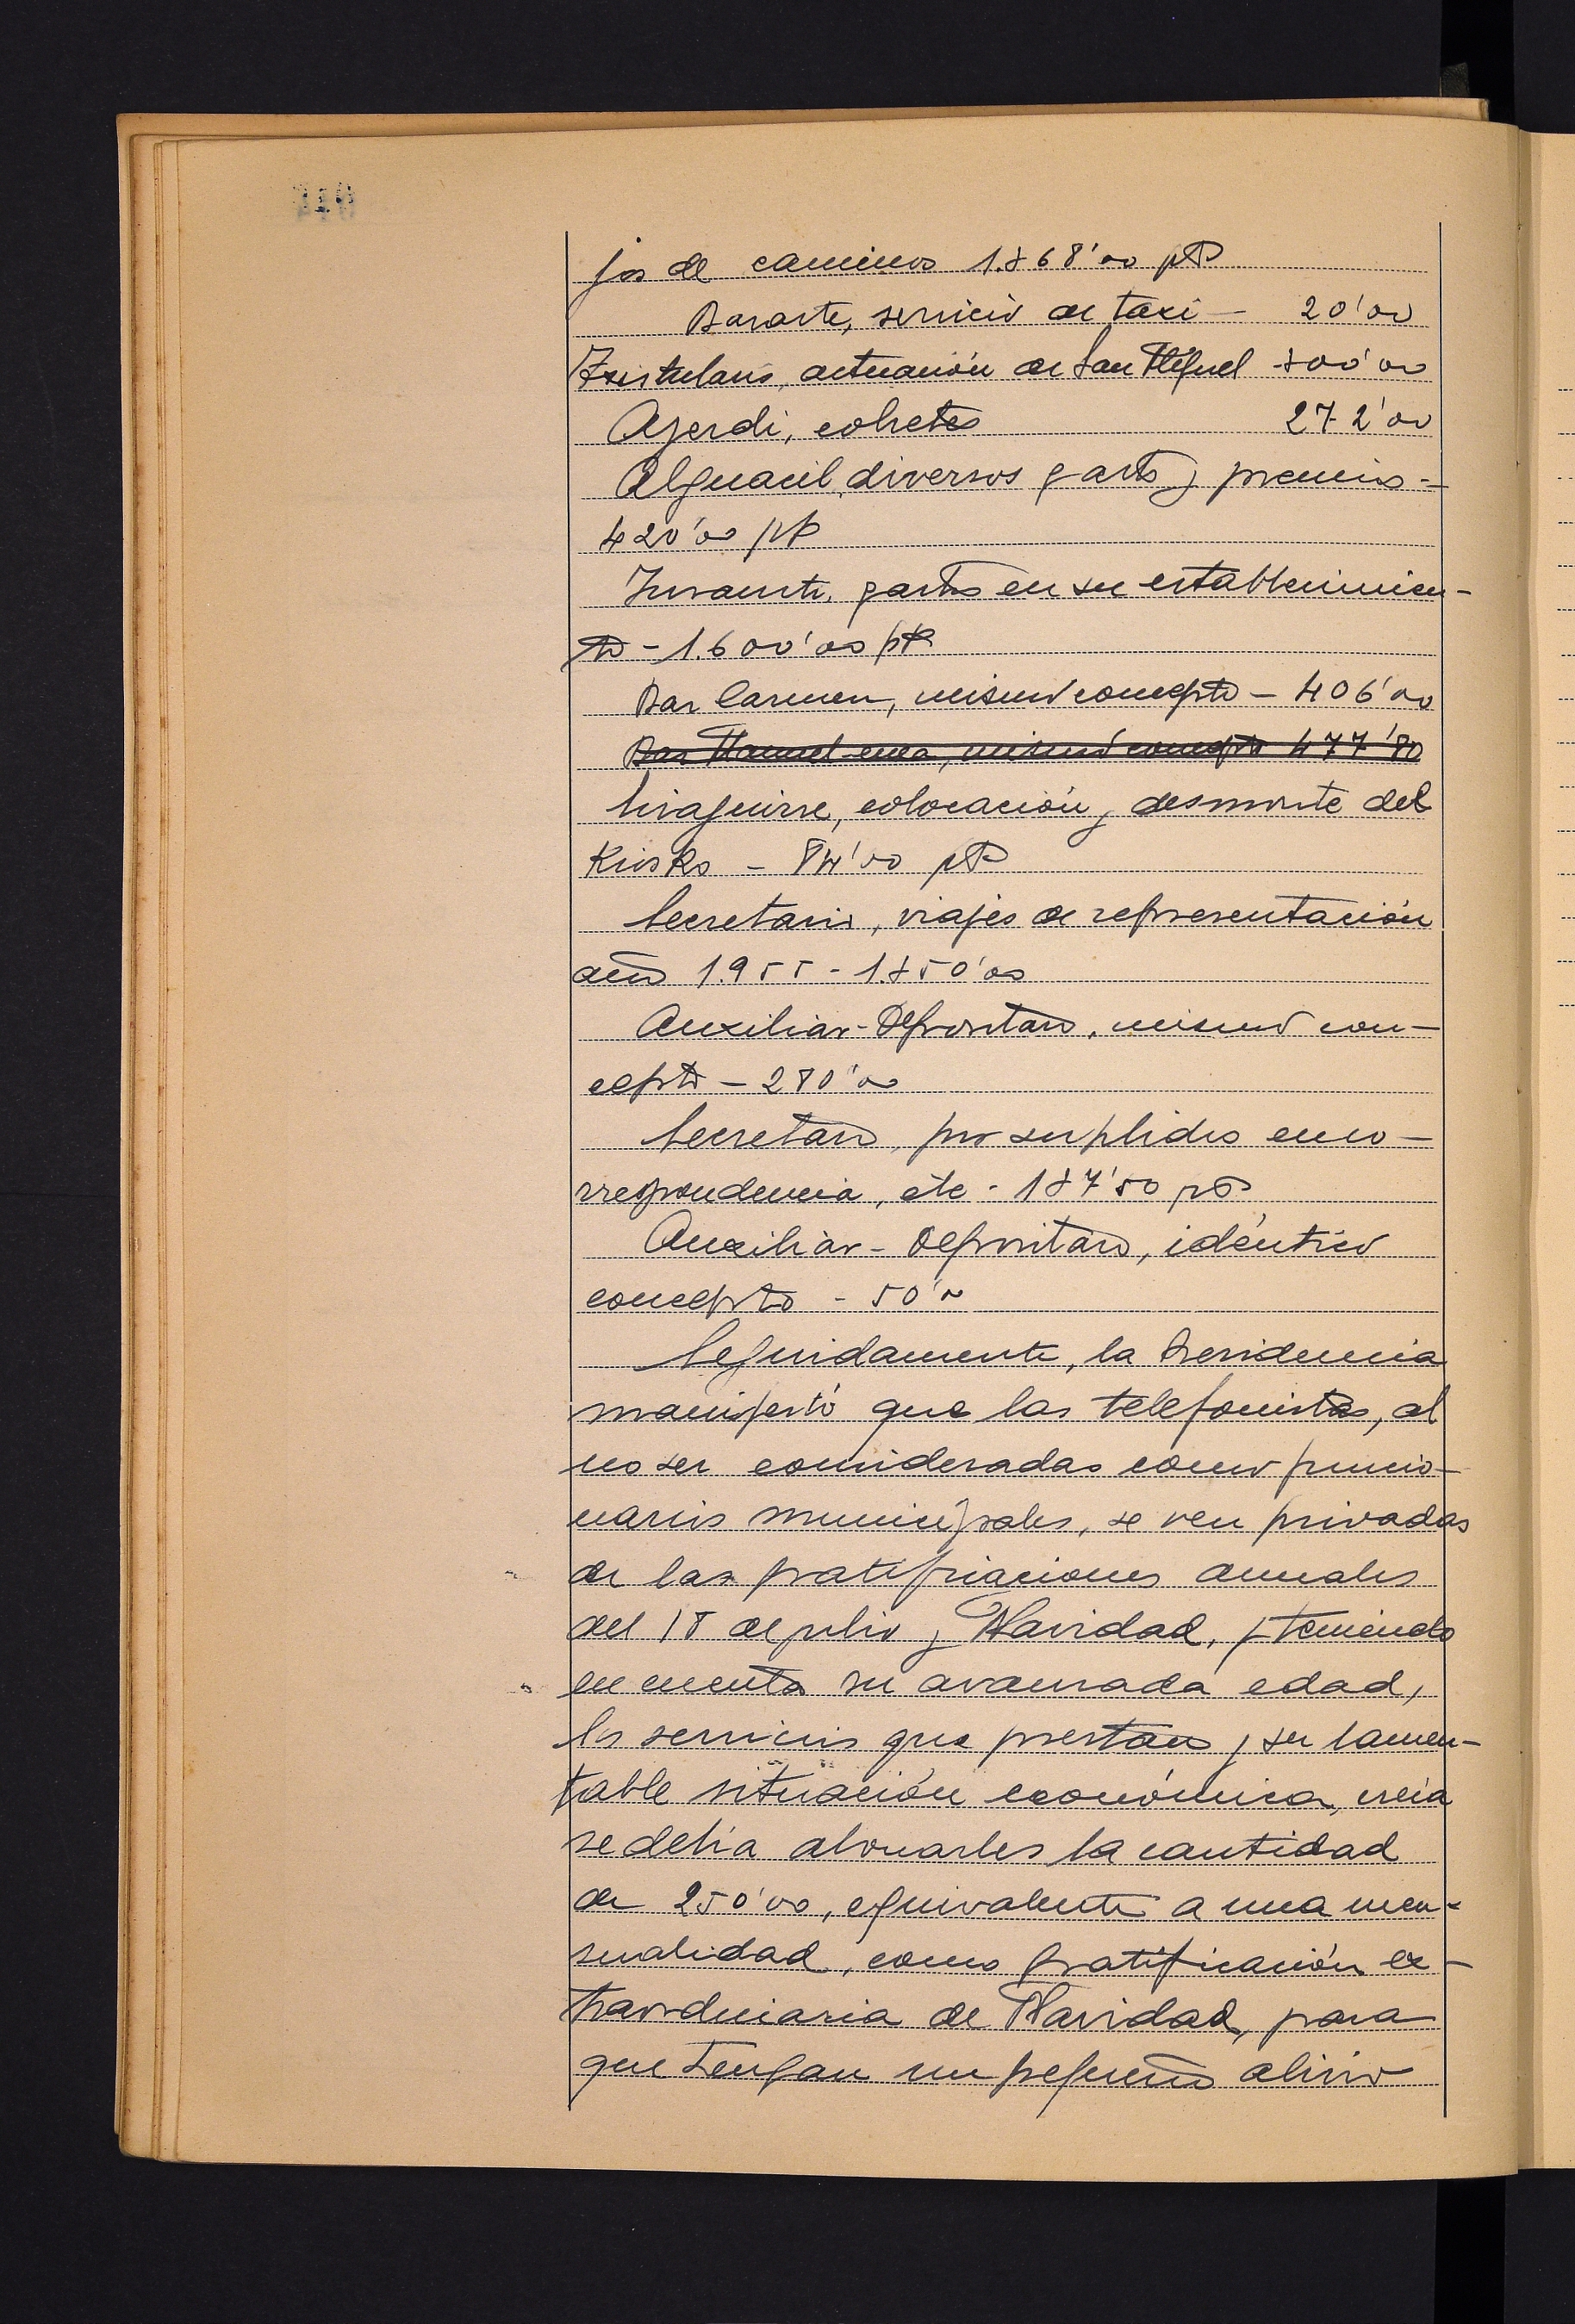 jos de caminos 1.368'00 pts
Basarte, servicio de taxi - 20'00
Txistularis, actuación de San Miguel 300'00
Ayerdi, cohetes 272'00
Alguacil, diversos gastos y premios -
420'00 pts
Insausti, gastos en su establecimien-
to - 1.600'00 pts
Bar Carmen, mismo concepto - 406'00
Bar Manuel-enea, mismo concepto 477'80
Giraguirre, colocación y desmonte del
Kiosko - 84'00 pts
Secretario, viajes de representación
año 1.955 - 1.350'00
Auxiliar-Depositario, mismo con-
cepto - 280'00
Secretario, por suplidos en co-
rrespondencia, etc - 137'50 pts
Auxiliar-Depositario, idéntico
concepto - 50'00
Seguidamente, la Presidencia
manifestó que las telefonistas, al
no ser consideradas como funcio-
narios municipales, se ven privadas
de las gratificaciones anuales
del 18 de julio y Navidad, y teniendo
en cuenta su avanzada edad,
los servicios que prestan y su lamen-
table situación económica, creía
se debía abonarles la cantidad
de 250'00, equivalente a una men-
sualidad, como gratificación ex-
traordinaria de Navidad, para
que tengan un pequeño alivio